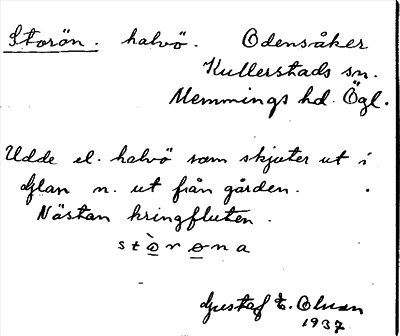 Storön. halvö. Odensåker
Kullerstads sn.
Memmings hd. Ögl.
Udde el. halvö som skjuter ut i
Glan n. ut från gården.
Nästan kringfluten.
stò̱rø̱na
Gustaf E. Olsson
1937